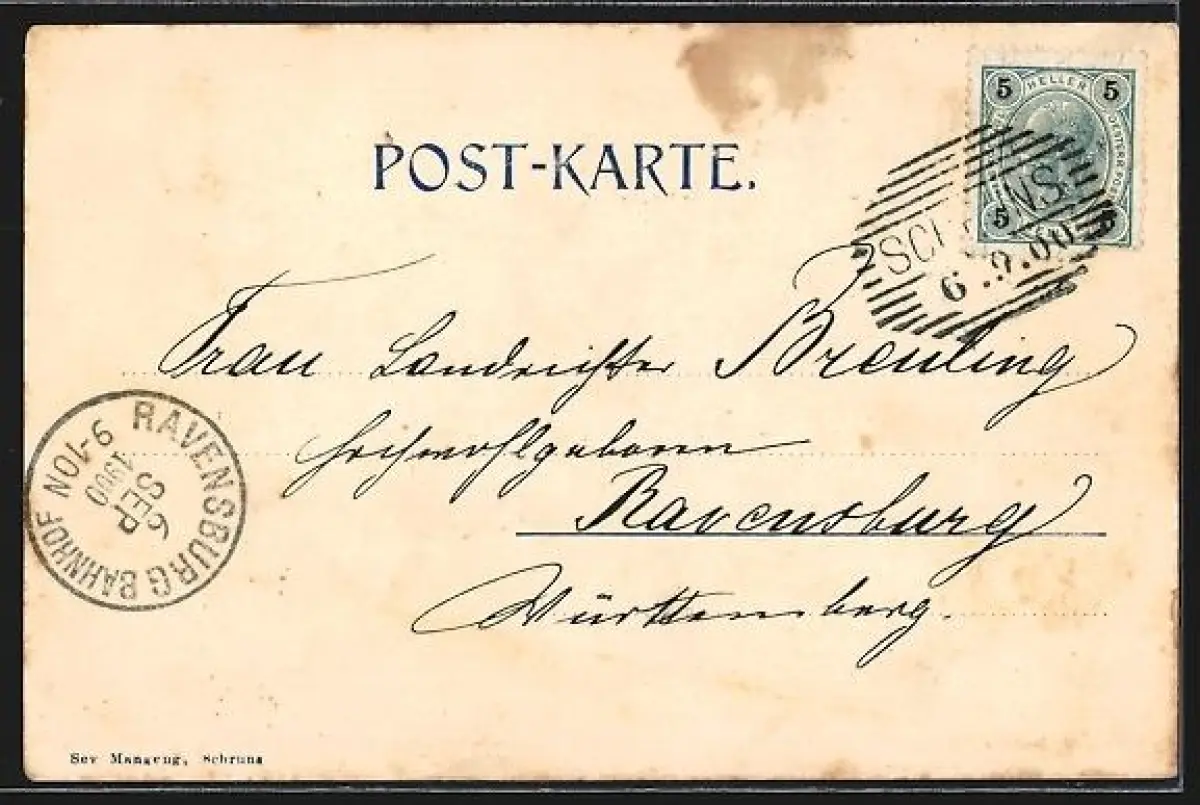 POST-KARTE.
5 HELLER 5
5 5
SCHRUNS
6.9.00
Frau Landrichter Breuling
Hochwohlgeboren
Ravensburg
Württemberg.
RAVENSBURG BAHNHOF
6
SEP
1900
9-10N
Sev Mangeng, Schruns